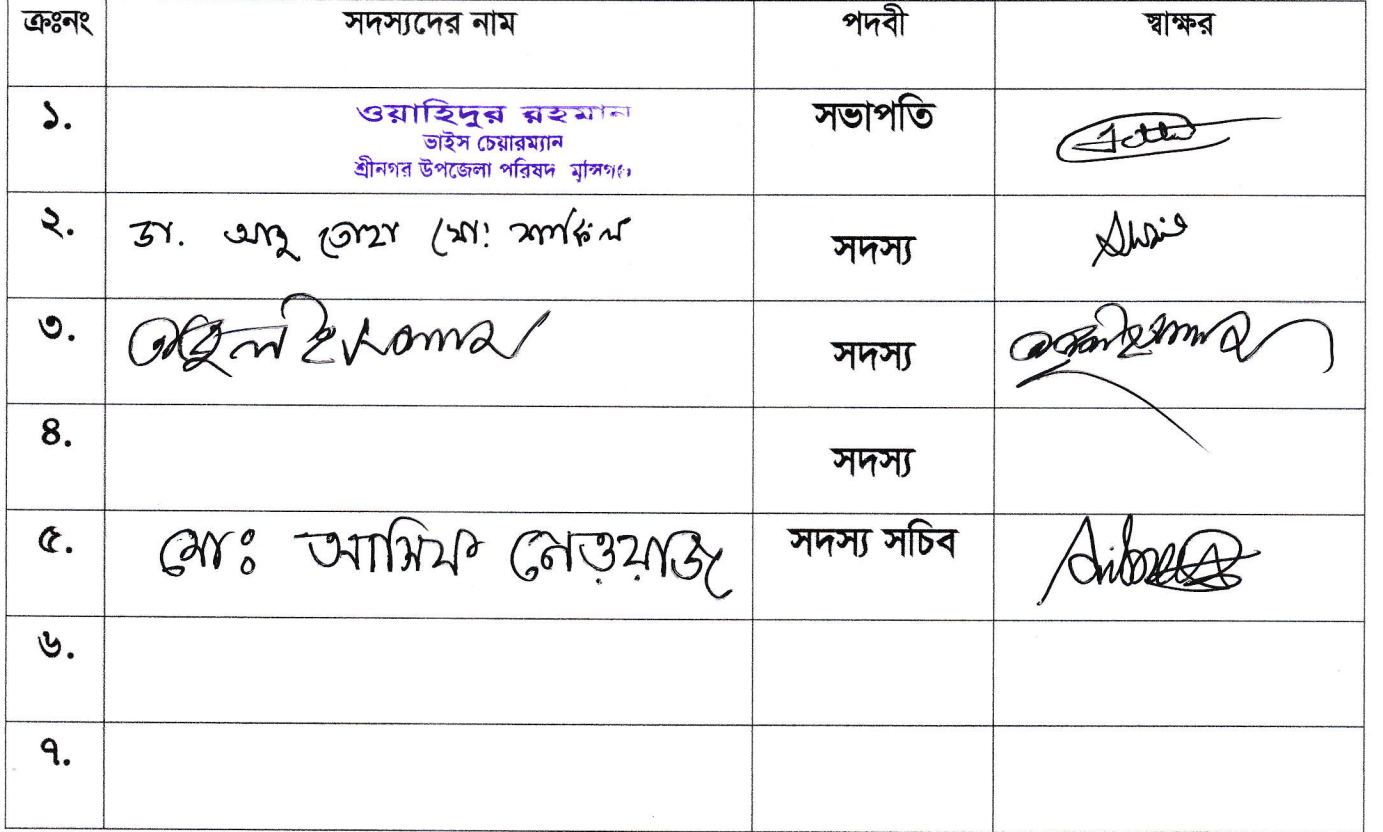 ক্রঃনং সদস্যদের নাম পদবী স্বাক্ষর
১. ওয়াহিদুর রহমান সভাপতি
ভাইস চেয়ারম্যান
শ্রীনগর উপজেলা পরিষদ মুন্সিগঞ্জ
২. ডা. আবু তোহা মো: সদস্য
৩. সদস্য
৪. সদস্য
৫. মোঃ আসিফ নেওয়াজ সদস্য সচিব
৬.
৭.